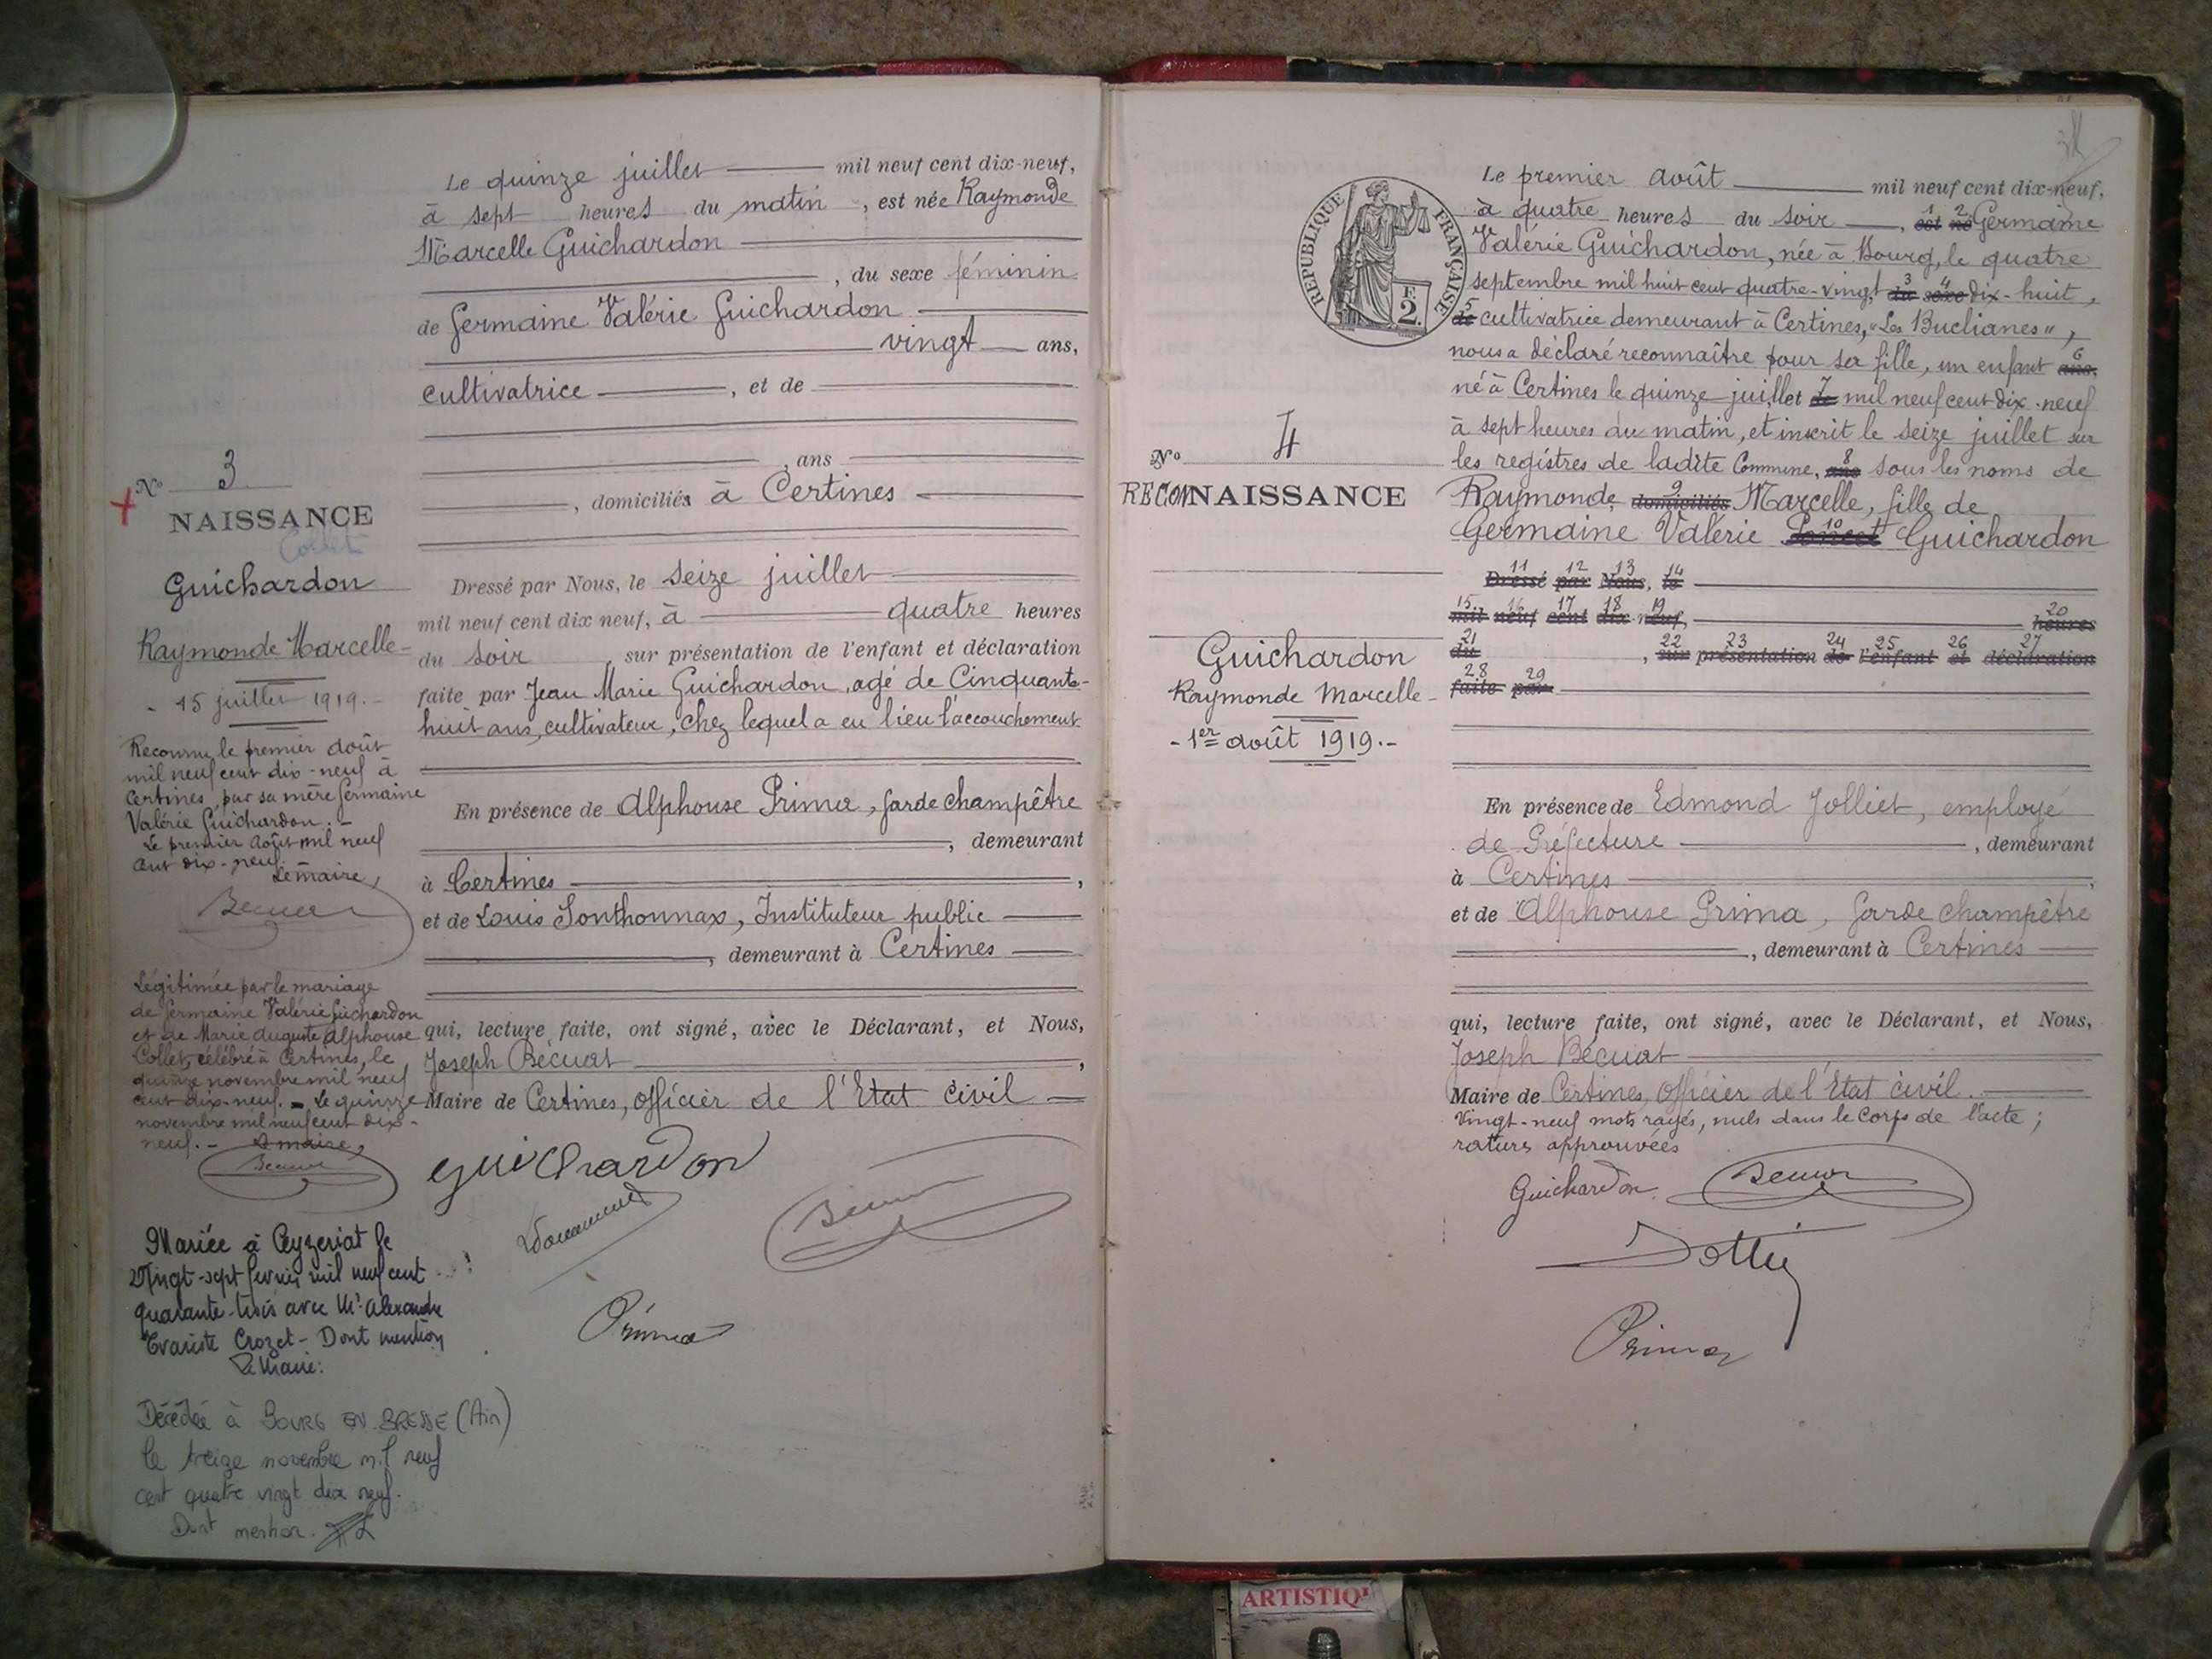 Le quinze juillet mil neuf cent dix-neuf,
à sept heures du matin, est née Raymonde
Marcelle Guichardon
, du sexe féminin
de Germaine Valérie Guichardon
vingt ans,
cultivatrice, et de
, ans
, domiciliés à Certines
Dressé par Nous, le seize juillet
mil neuf cent dix neuf, à quatre heures
du soir, sur présentation de l'enfant et déclaration
faite par Jean Marie Guichardon, agé de Cinquante-
huit ans, cultivateur, chez lequel a eu lieu l'accouchement
En présence de Alphonse Prima, garde champêtre
, demeurant
à Certines,
et de Louis Sonthonnax, Instituteur public
, demeurant à Certines
qui, lecture faite, ont signé, avec le Déclarant, et Nous,
Joseph Bécuat,
Maire de Certines, officier de l'Etat civil
Guichardon
Prima
N° 3
NAISSANCE
Collet
Guichardon
Raymonde Marcelle-
- 15 juillet 1919.-
Reconnu le premier août
mil neuf cent dix-neuf à
Certines, par sa mère Germaine
Valérie Guichardon.-
Le premier Août mil neuf
cent dix-neuf.
Le maire,
Légitimée par le mariage
de Germaine Valérie Guichardon
et de Marie Auguste Alphonse
Collet, célébré à Certines, le
quinze novembre mil neuf
cent dix-neuf. - Le quinze
novembre mil neuf cent dix-
neuf.- Le maire,
Mariée à Ceyzeriat le
Vingt-sept février mil neuf cent
quarante-trois avec Mr Alexandre
Evariste Crozet - Dont mention
Le Maire:
Décédée à BOURG EN BRESSE (Ain)
le treize novembre mil neuf
cent quatre vingt dix neuf.
Dont mention.
REPUBLIQUE FRANÇAISE
F.
2.
Le premier août mil neuf cent dix-neuf,
à quatre heures du soir, est 1 né 2 Germaine
Valérie Guichardon, née à Bourg, le quatre
septembre mil huit cent quatre-vingt du 3 sexe 4 dix-huit,
de 5 cultivatrice demeurant à Certines, "Les Buclianes",
nous a déclaré reconnaître pour sa fille, un enfant ans, 6
né à Certines le quinze juillet 7 mil neuf cent dix-neuf
à sept heures du matin, et inscrit le seize juillet sur
les registres de ladite Commune, ans 8 sous les noms de
Raymonde, domiciliés 9 Marcelle, fille de
Germaine Valérie 10 Guichardon
Dressé 11 par 12 Nous, 13 le 14
mil 15 neuf 16 cent 17 dix 18 neuf, 19 heures 20
du 21, sur 22 présentation 23 de 24 l'enfant 25 et 26 déclaration 27
faite 28 par 29
En présence de Edmond Jolliet, employé
de Préfecture, demeurant
à Certines,
et de Alphonse Prima, garde champêtre
, demeurant à Certines
qui, lecture faite, ont signé, avec le Déclarant, et Nous,
Joseph Bécuat
Maire de Certines, Officier de l'Etat civil.
Vingt-neuf mots rayés, nuls dans le Corps de l'acte;
raturs approuvées
Guichardon
Prima
N° 4
RECONNAISSANCE
Guichardon
Raymonde Marcelle-
- 1er août 1919.-
ARTISTIQ